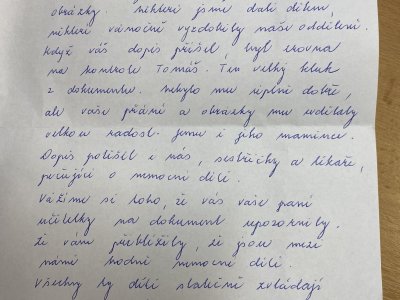 obrázky. Některé jsme dali dětem,
některé vánočně vyzdobily naše oddělení.
Když váš dopis přišel, byl zrovna
na kontrole Tomáš. Ten velký kluk
z dokumentu. Nebylo mu úplně dobře,
ale vaše přání a obrázky mu udělaly
velkou radost. Jemu i jeho mamince.
Dopis potěšil i nás, sestřičky a lékaře,
pečující o nemocné děti.
Vážíme si toho, že vás vaše paní
učitelky na dokument upozornily,
že vám přiblížily, že jsou mezi
námi hodně nemocné děti.
Všechny ty děti statečně zvládají